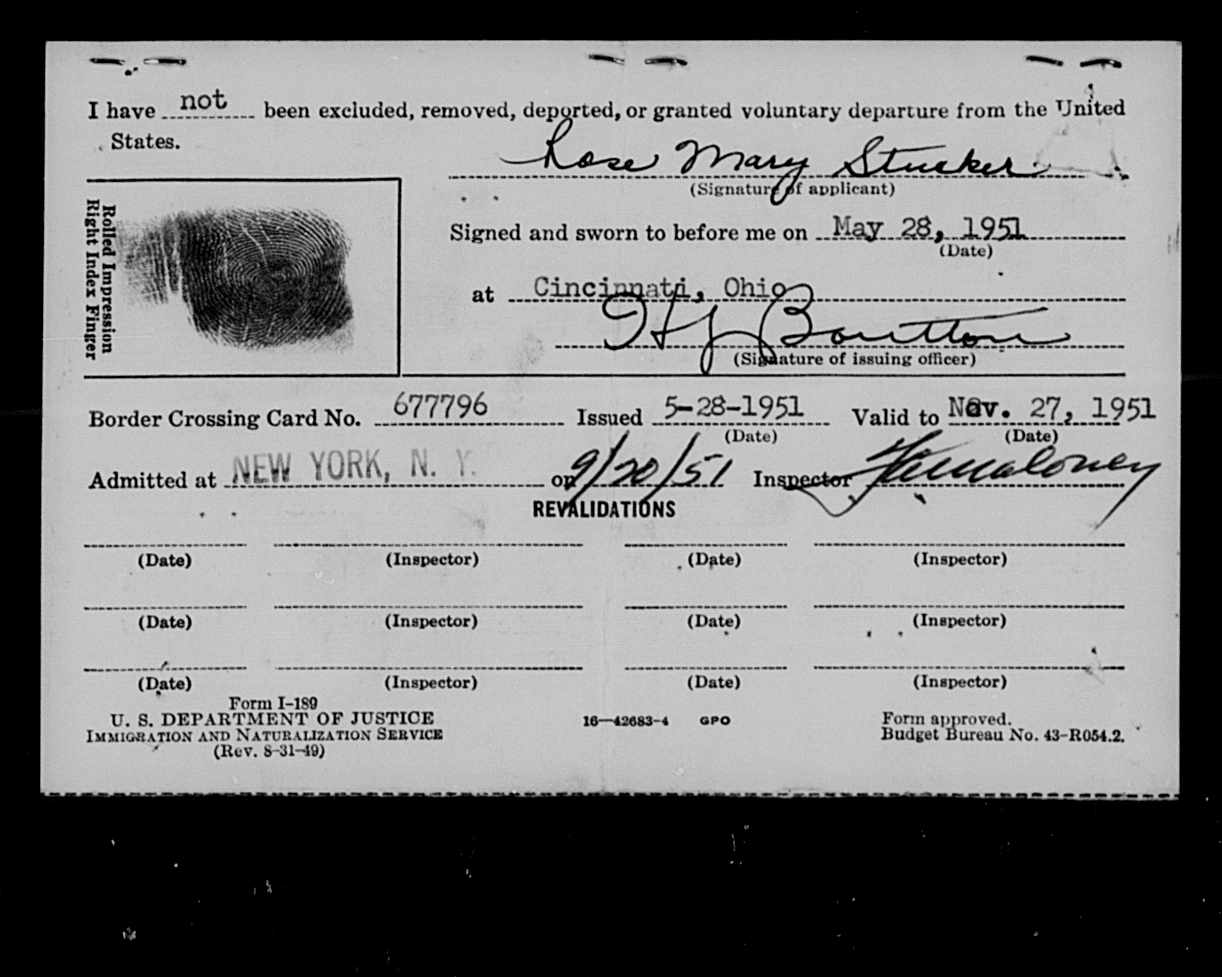 I have not been excluded, removed, deported, or granted voluntary departure from the United
States.
Rose Mary Stucker
(Signature of applicant)
Rolled Impression
Right Index Finger
Signed and sworn to before me on May 28, 1951
(Date)
at Cincinnati, Ohio
(Signature of issuing officer)
Border Crossing Card No. 677796 Issued 5-28-1951 Valid to Nov. 27, 1951
(Date) (Date)
Admitted at NEW YORK, N. Y. on 9/20/51 Inspector
REVALIDATIONS
(Date) (Inspector) (Date) (Inspector)
(Date) (Inspector) (Date) (Inspector)
(Date) (Inspector) (Date) (Inspector)
Form I-189
U. S. DEPARTMENT OF JUSTICE 16—42683-4 GPO Form approved.
IMMIGRATION AND NATURALIZATION SERVICE Budget Bureau No. 43-R054.2.
(Rev. 8-31-49)